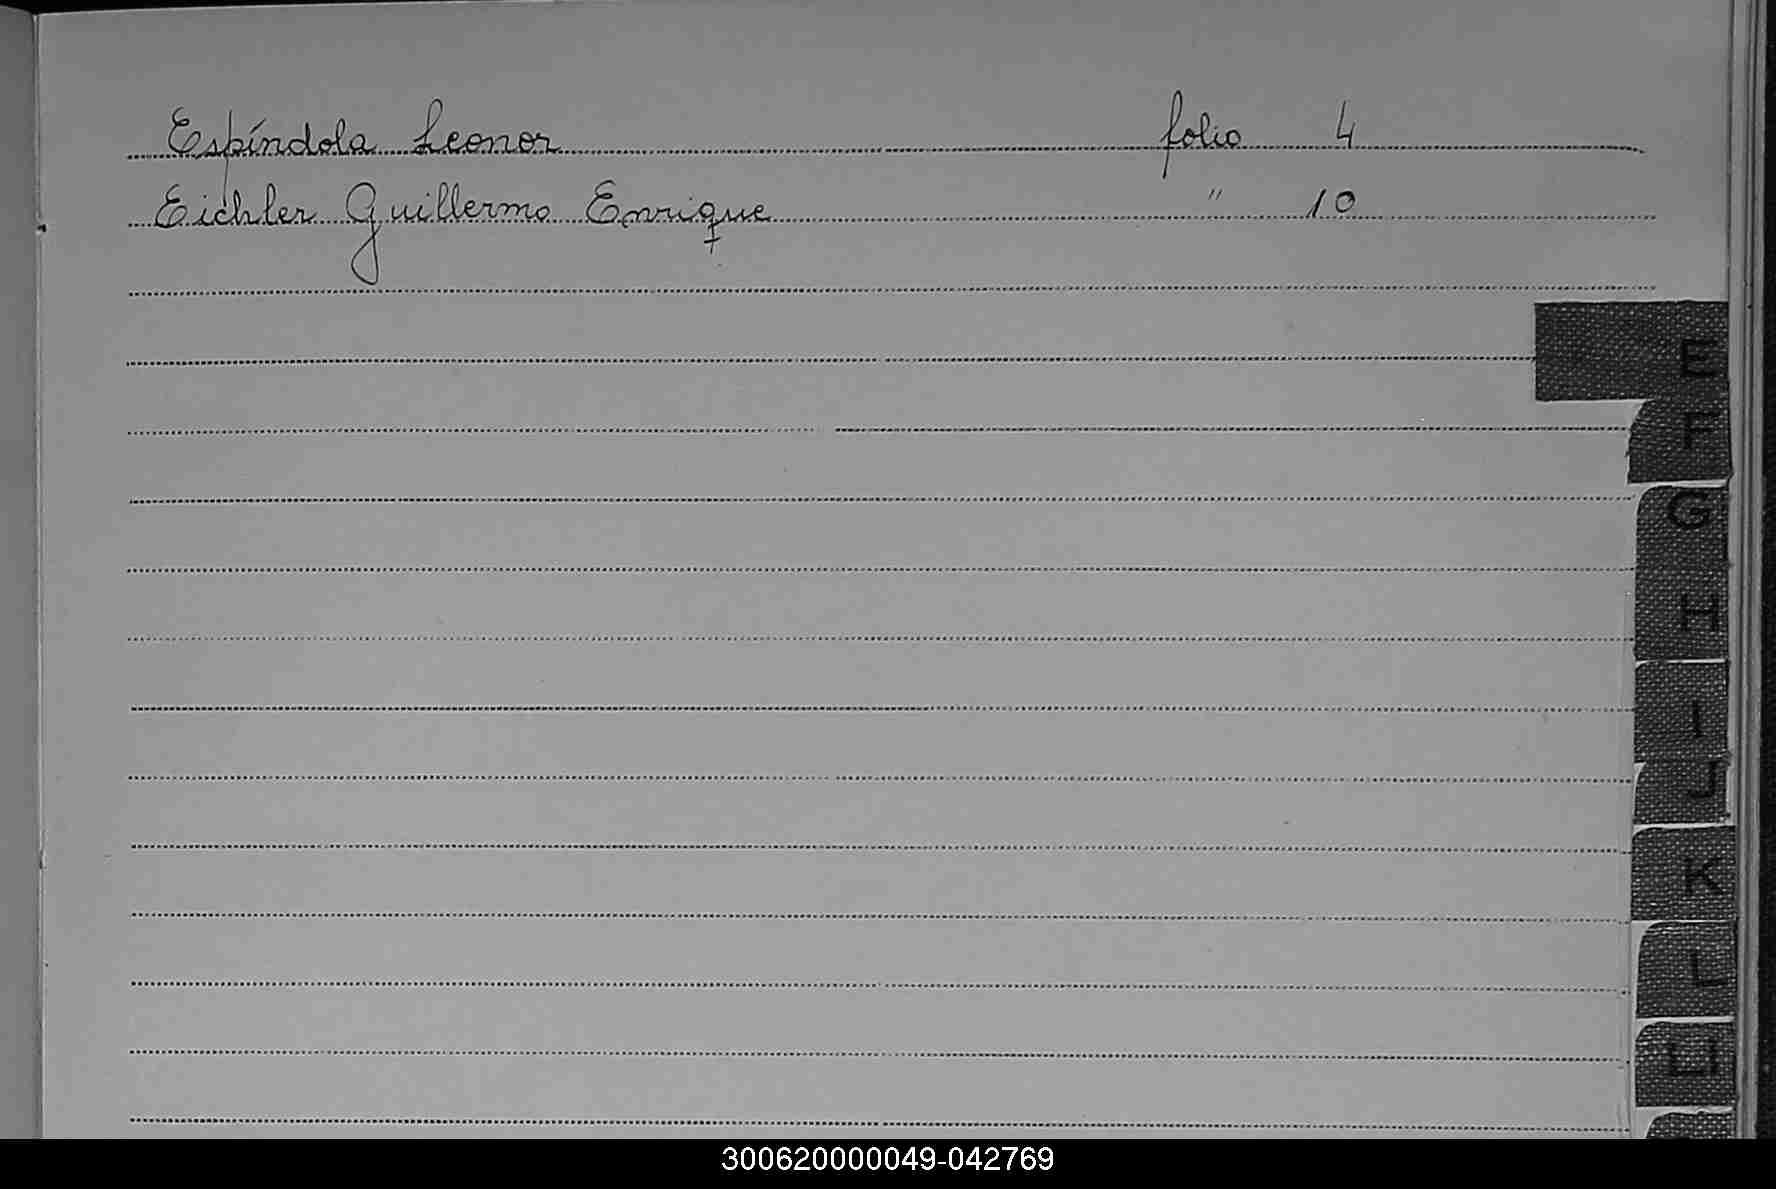 Espíndola Leonor folio 4
Eichler Guillermo Enrique " 10
E
F
G
H
I
J
K
L
LI
300620000049-042769